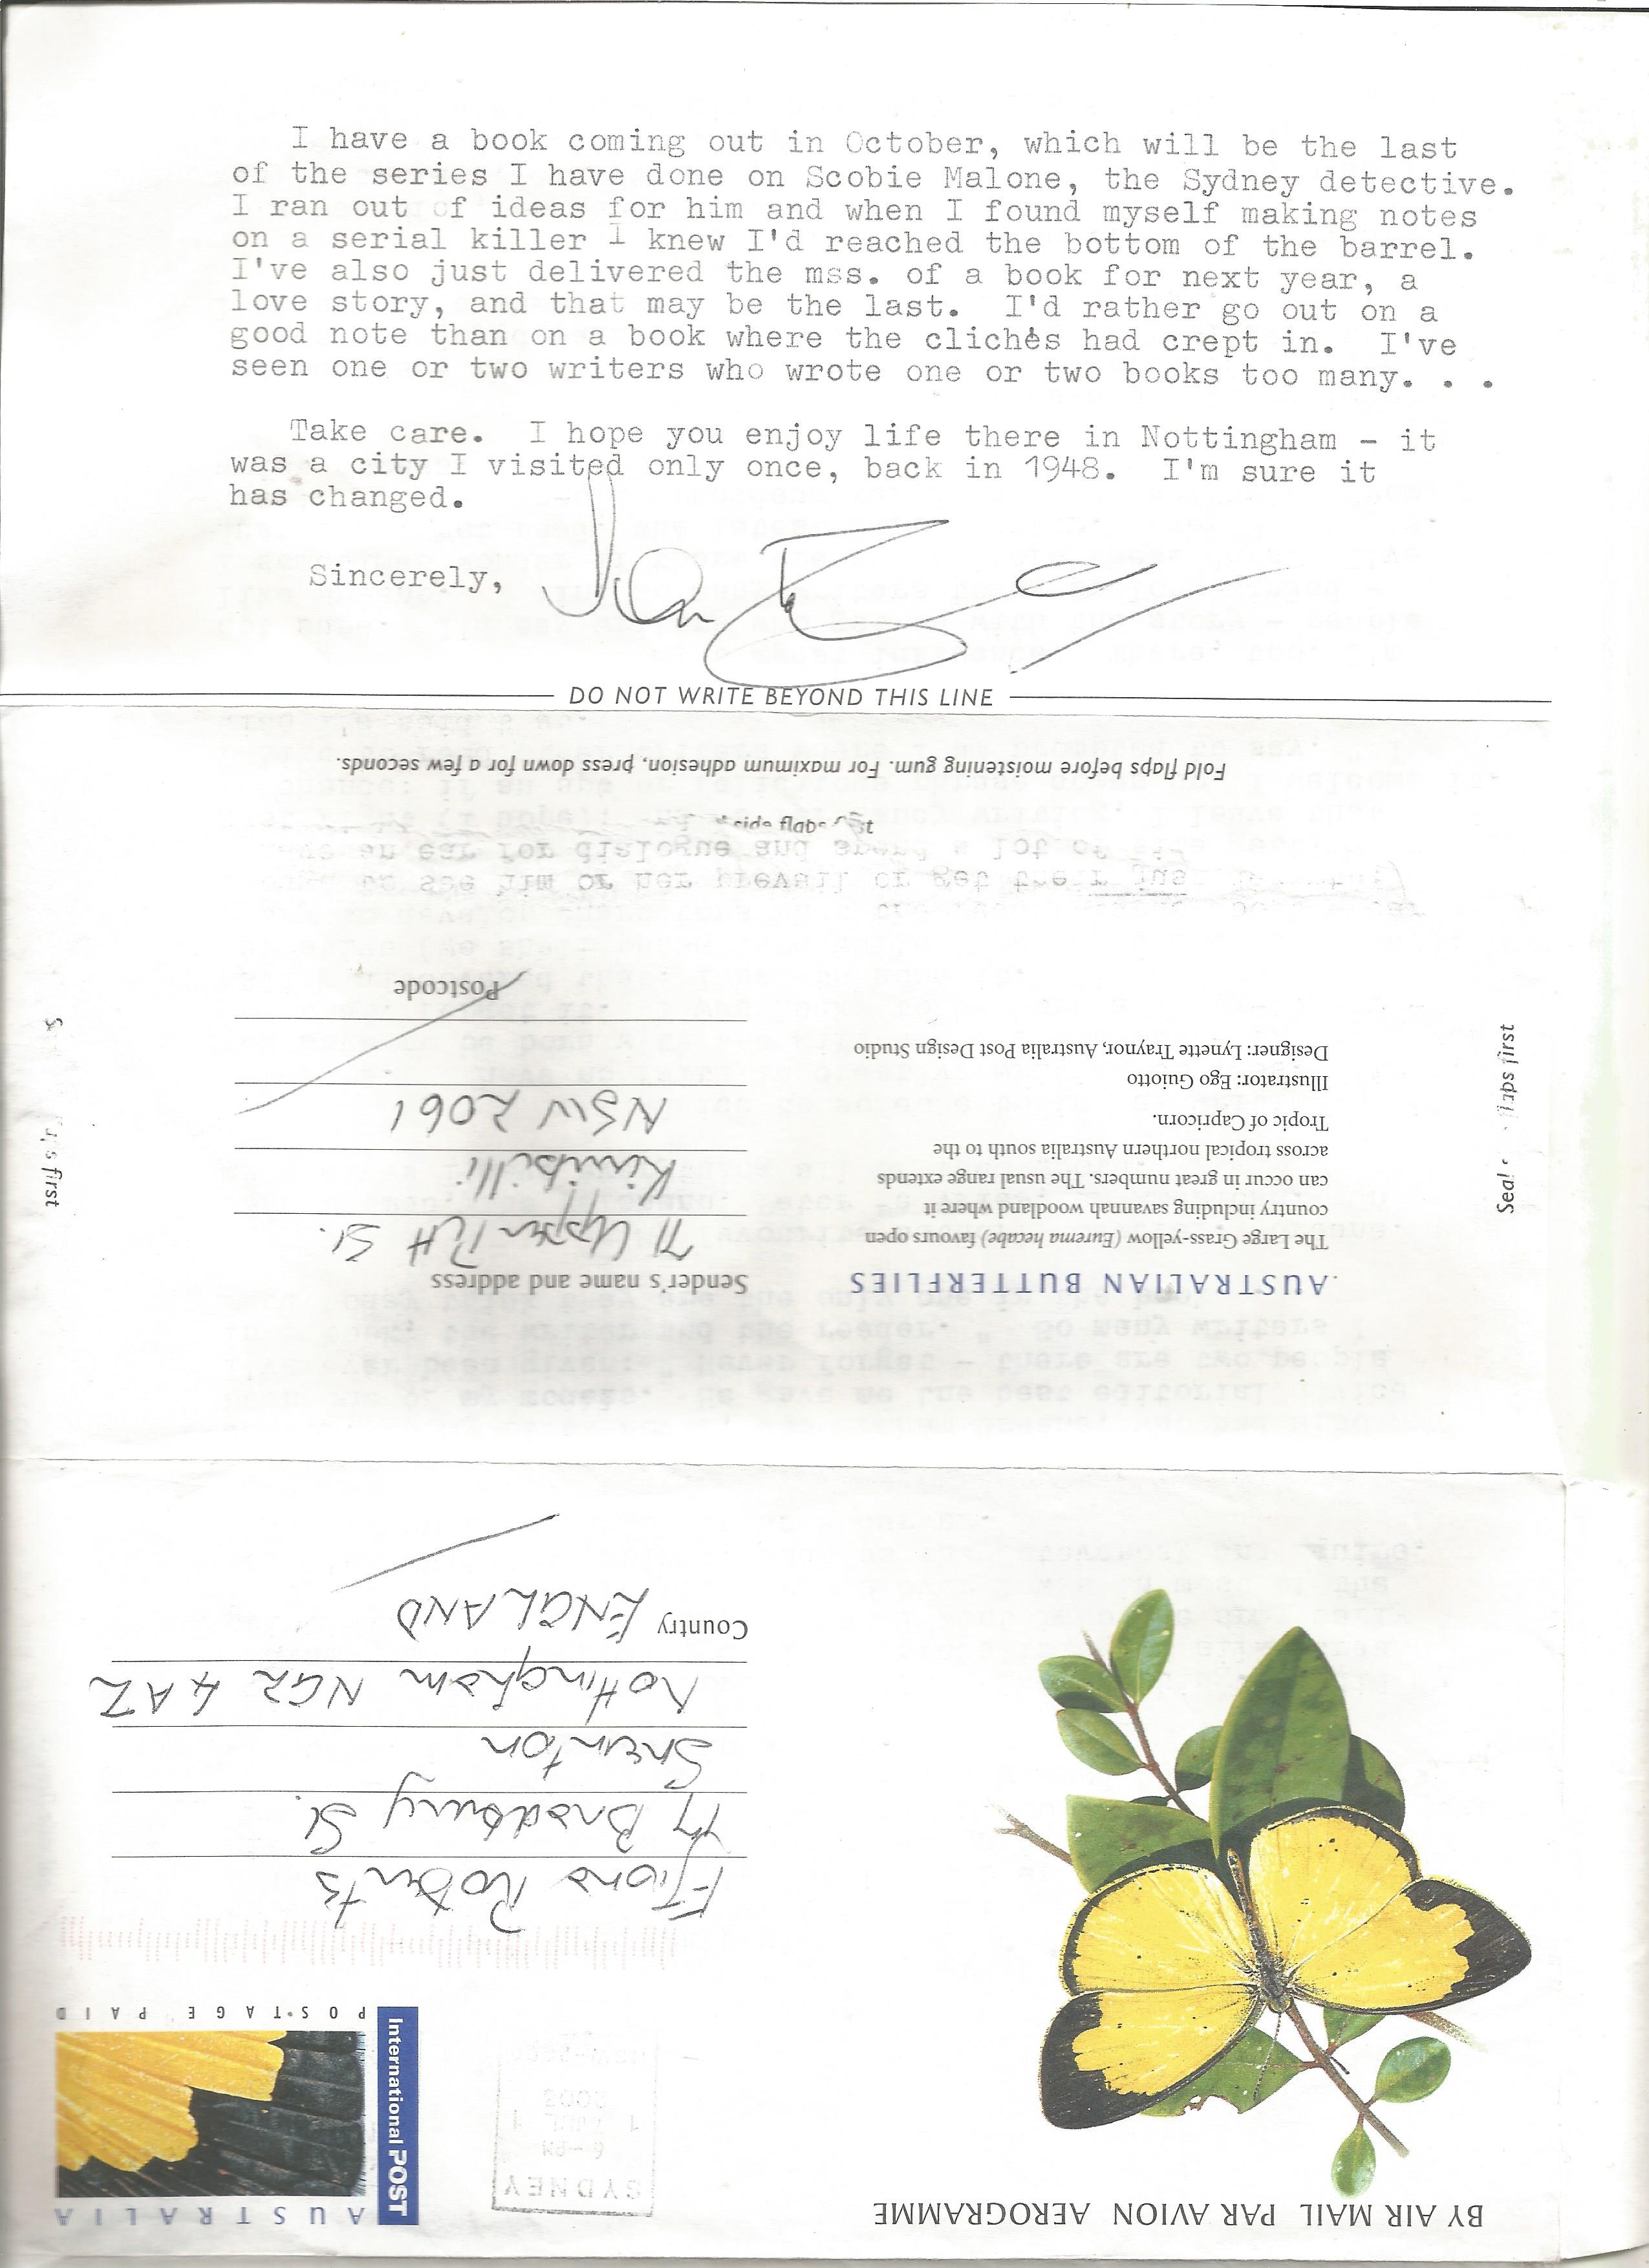 I have a book coming out in October, which will be the last
of the series I have done on Scobie Malone, the Sydney detective.
I ran out of ideas for him and when I found myself making notes
on a serial killer I knew I'd reached the bottom of the barrel.
I've also just delivered the mss. of a book for next year, a
love story, and that may be the last. I'd rather go out on a
good note than on a book where the clichés had crept in. I've
seen one or two writers who wrote one or two books too many. . .
Take care. I hope you enjoy life there in Nottingham - it
was a city I visited only once, back in 1948. I'm sure it
has changed.
Sincerely,
DO NOT WRITE BEYOND THIS LINE
Fold flaps before moistening gum. For maximum adhesion, press down for a few seconds.
side flaps first
Seal flaps first
flaps first
AUSTRALIAN BUTTERFLIES
The Large Grass-yellow (Eurema hecabe) favours open
country including savannah woodland where it
can occur in great numbers. The usual range extends
across tropical northern Australia south to the
Tropic of Capricorn.
Illustrator: Ego Guiotto
Designer: Lynette Traynor, Australia Post Design Studio
Sender's name and address
71 Upper Pitt St.
Kirribilli
NSW 2061
Postcode
BY AIR MAIL PAR AVION AEROGRAMME
AUSTRALIA
International POST
POSTAGE PAID
SYDNEY
6-PM
2003
Fiona Roberts
Bradbury St.
Sneinton
Nottingham NG2 4AZ
Country ENGLAND